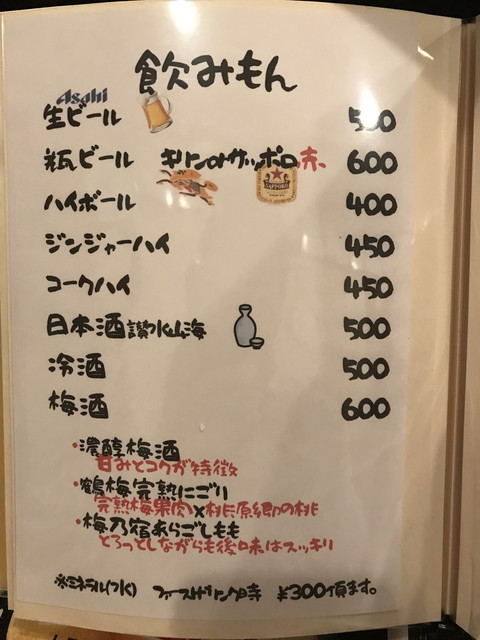 飲みもん
Asahi
生ビール 500
瓶ビール キリンorサッポロ赤 600
SAPPORO
ハイボール 400
ジンジャーハイ 450
コークハイ 450
日本酒 讃水山海 500
冷酒 500
梅酒 600
・濃醇梅酒
甘みとコクが特徴
・鶴梅完熟にごり
完熟梅果肉×桃源郷の桃
・梅乃宿あらごしもも
とろっとしながらも後味はスッキリ
※ミネラル(水) ファーストドリンク時 ¥300頂ます。